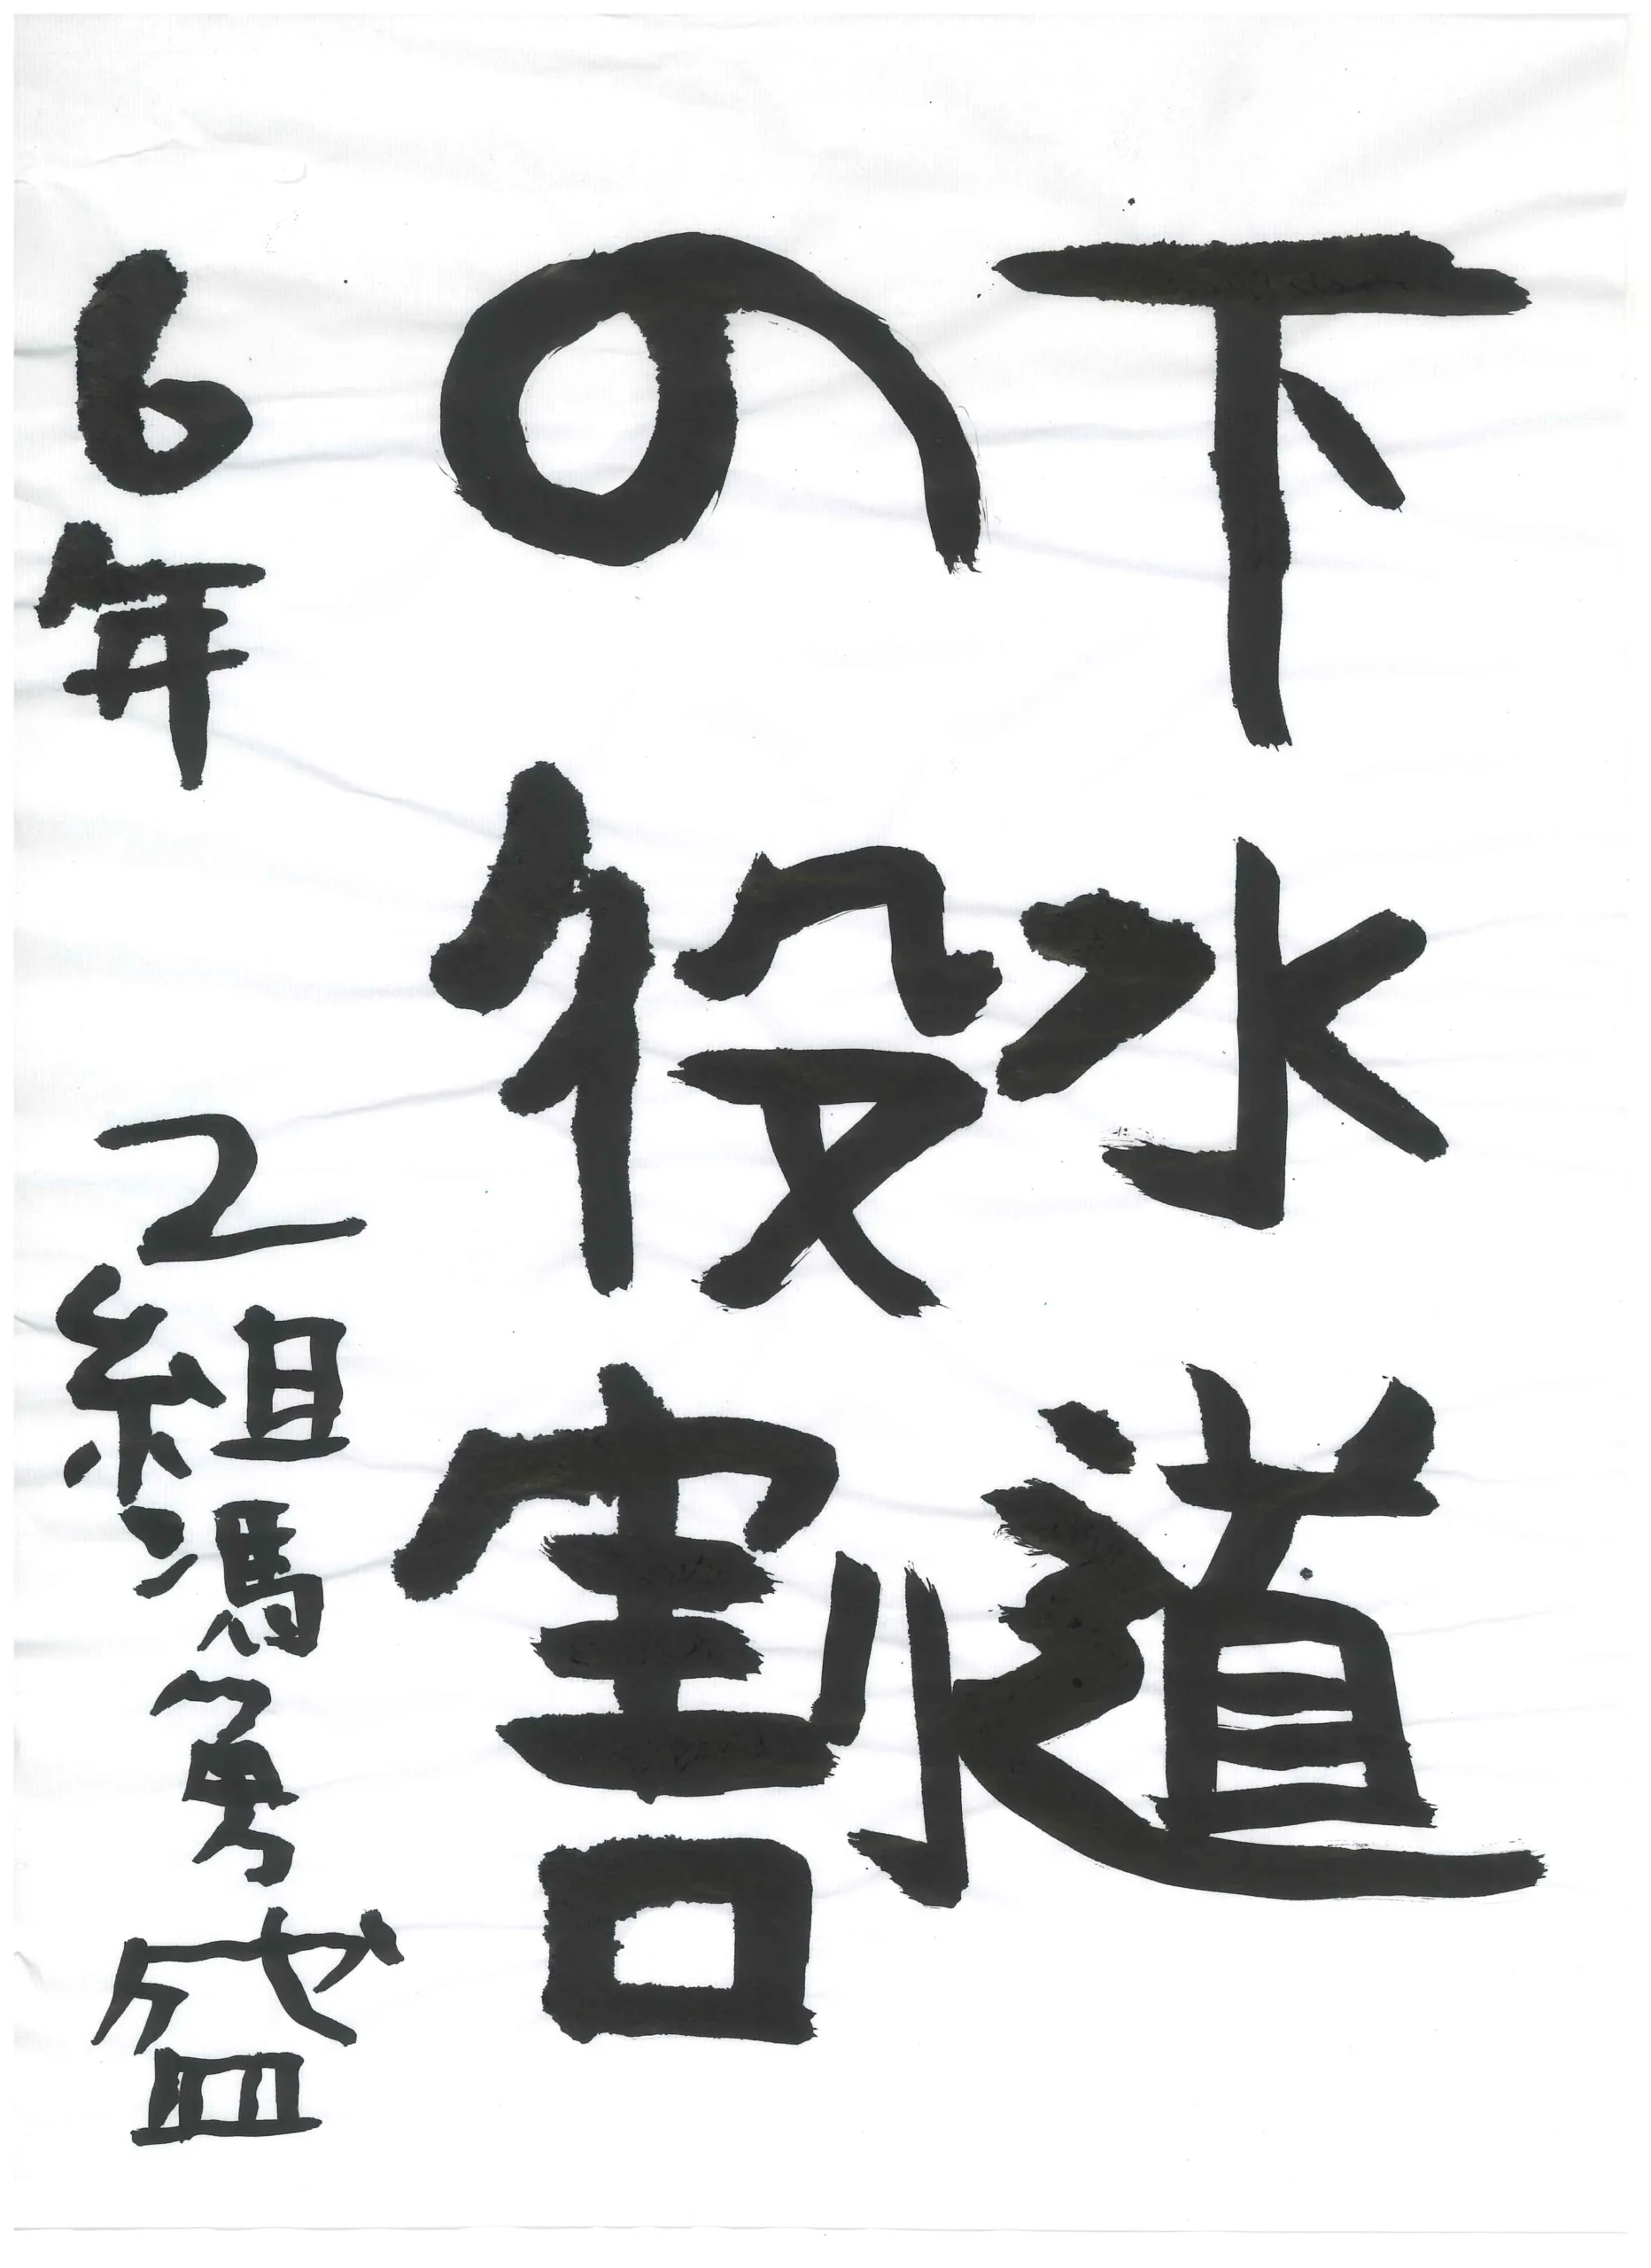 下水道
の役割
6年 2組 馮勇盛